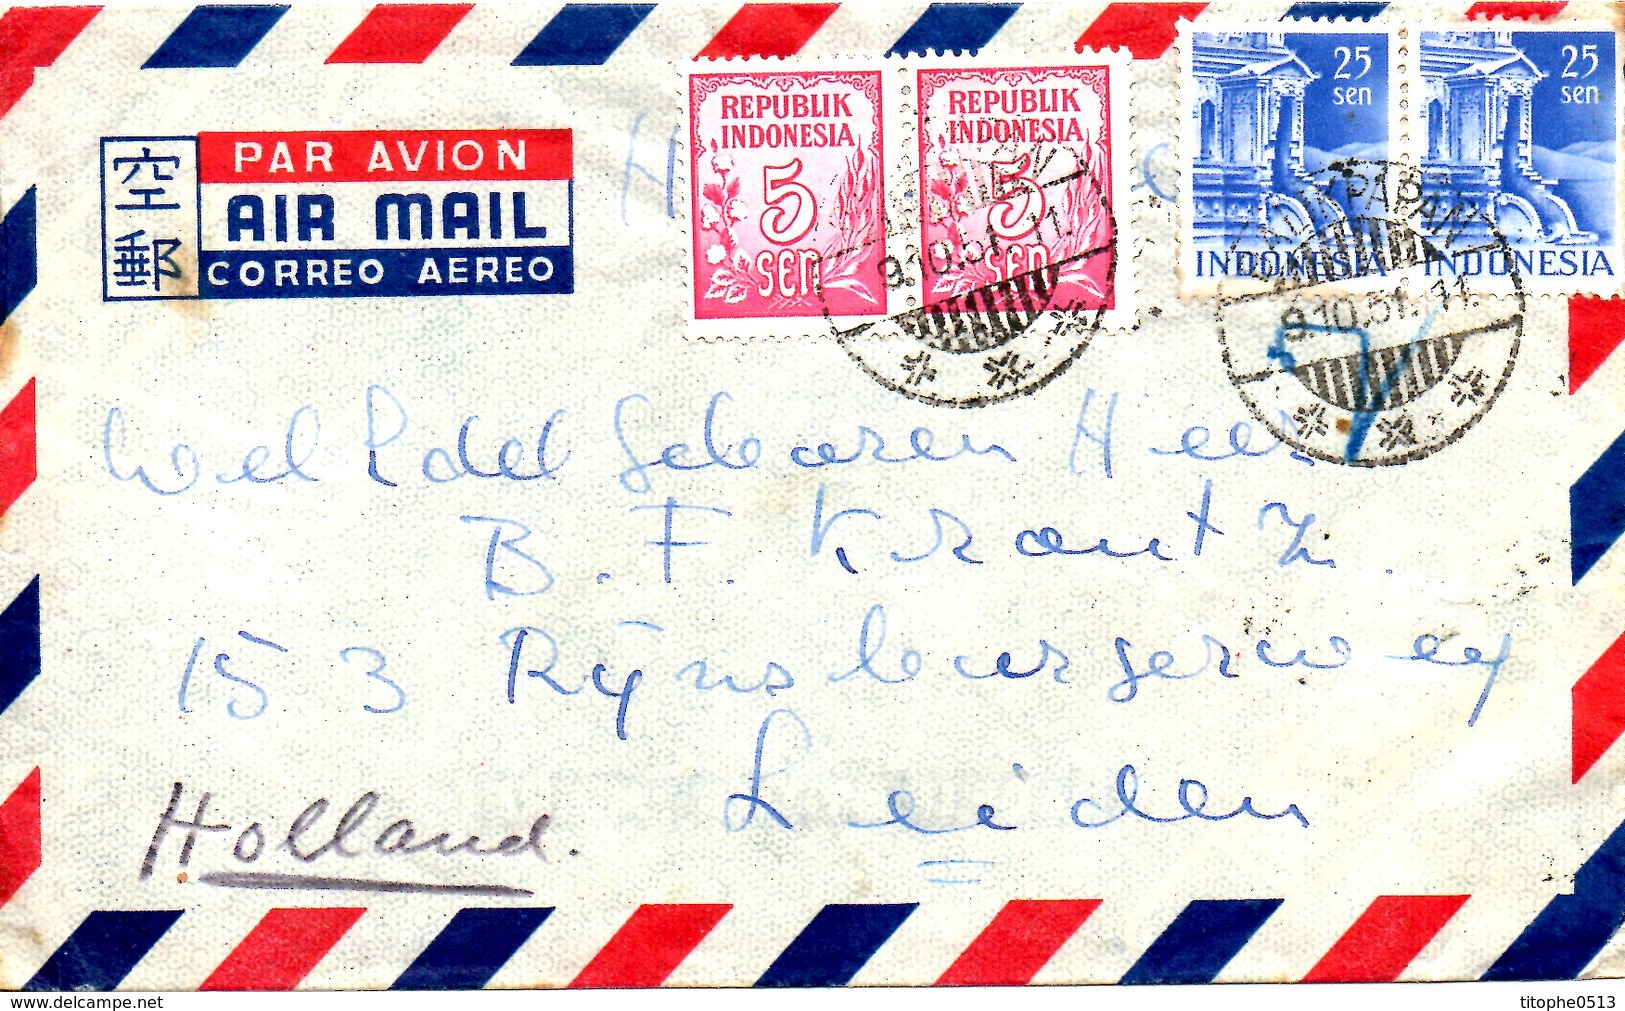 空郵
PAR AVION
AIR MAIL
CORREO AEREO
REPUBLIK
INDONESIA
5
sen
REPUBLIK
INDONESIA
5
sen
25
sen
INDONESIA
25
sen
INDONESIA
9.10.51. 11.
BALIKPAPAN
9.10.51. 11.
Wel Edel Geboren Heer
B. F. Krantz.
153 Rijnsburgerweg
Leiden
Holland.
www.delcampe.net
titophe0513